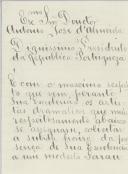 Exmo Snr Doutor
Antonio José d'Almeida
Digníssimo Presidente
da Republica Portugueza
É com o maximo respei-
to que vem, perante
Sua Excelencia os artis-
tas dramaticos que mui
respeitosamente abaixo
se assignam, solicitar
a subida honra da pre-
sença de Sua Excelencia
a um modesto Sarau